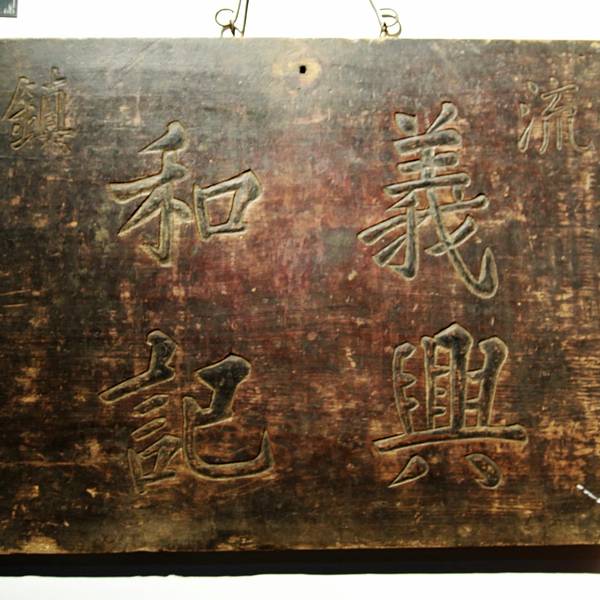 流
義興
和記
鎮